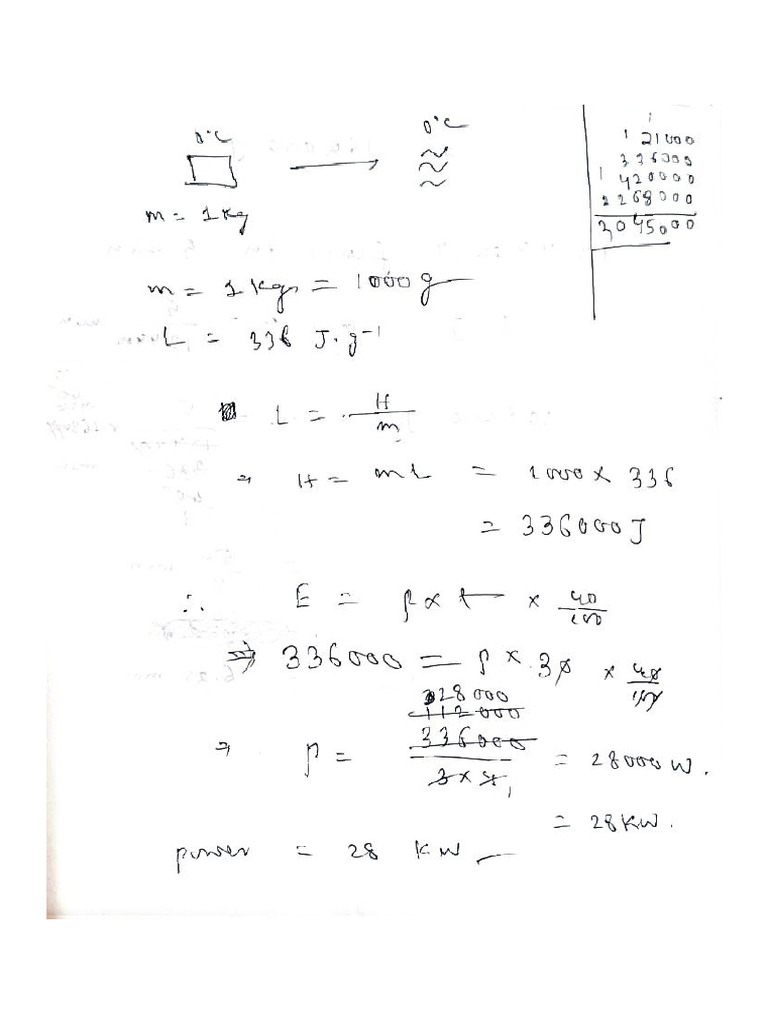 0°C
0°C
m = 1kg
1
1 21000
336000
1 420000
2268000
3045000
m = 1kg = 1000g
L = 336 J.g⁻¹
L = H/m
⇒ H = mL = 1000 × 336
= 336000J
∴ E = P × t × 40/100
⇒ 336000 = P × 30 × 40/100
28000
112000
⇒ P = 336000/3×4 = 28000W.
= 28KW.
power = 28 KW